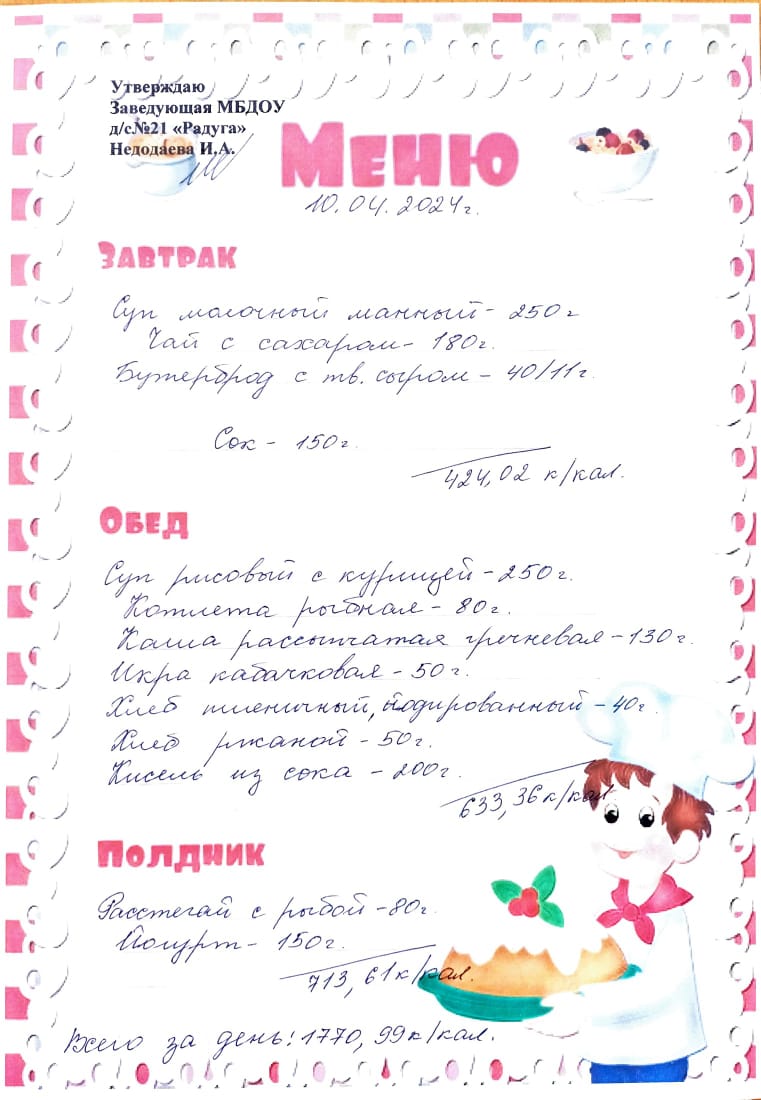 Утверждаю
Заведующая МБДОУ
д/с№21 «Радуга»
Недодаева И.А.
Меню
10.04.2024г.
Завтрак
Суп молочный манный - 250г
Чай с сахаром - 180г.
Бутерброд с тв. сыром - 40/11г.
Сок - 150г.
424,02 к/кал.
Обед
Суп рисовый с курицей - 250г.
Котлета рыбная - 80г.
Каша рассыпчатая гречневая - 130г.
Икра кабачковая - 50г.
Хлеб пшеничный, йодированный - 40г.
Хлеб ржаной - 50г.
Кисель из сока - 200г.
633,36 к/кал
Полдник
Расстегай с рыбой - 80г.
Йогурт - 150г.
713,61 к/кал.
Всего за день: 1770,99 к/кал.